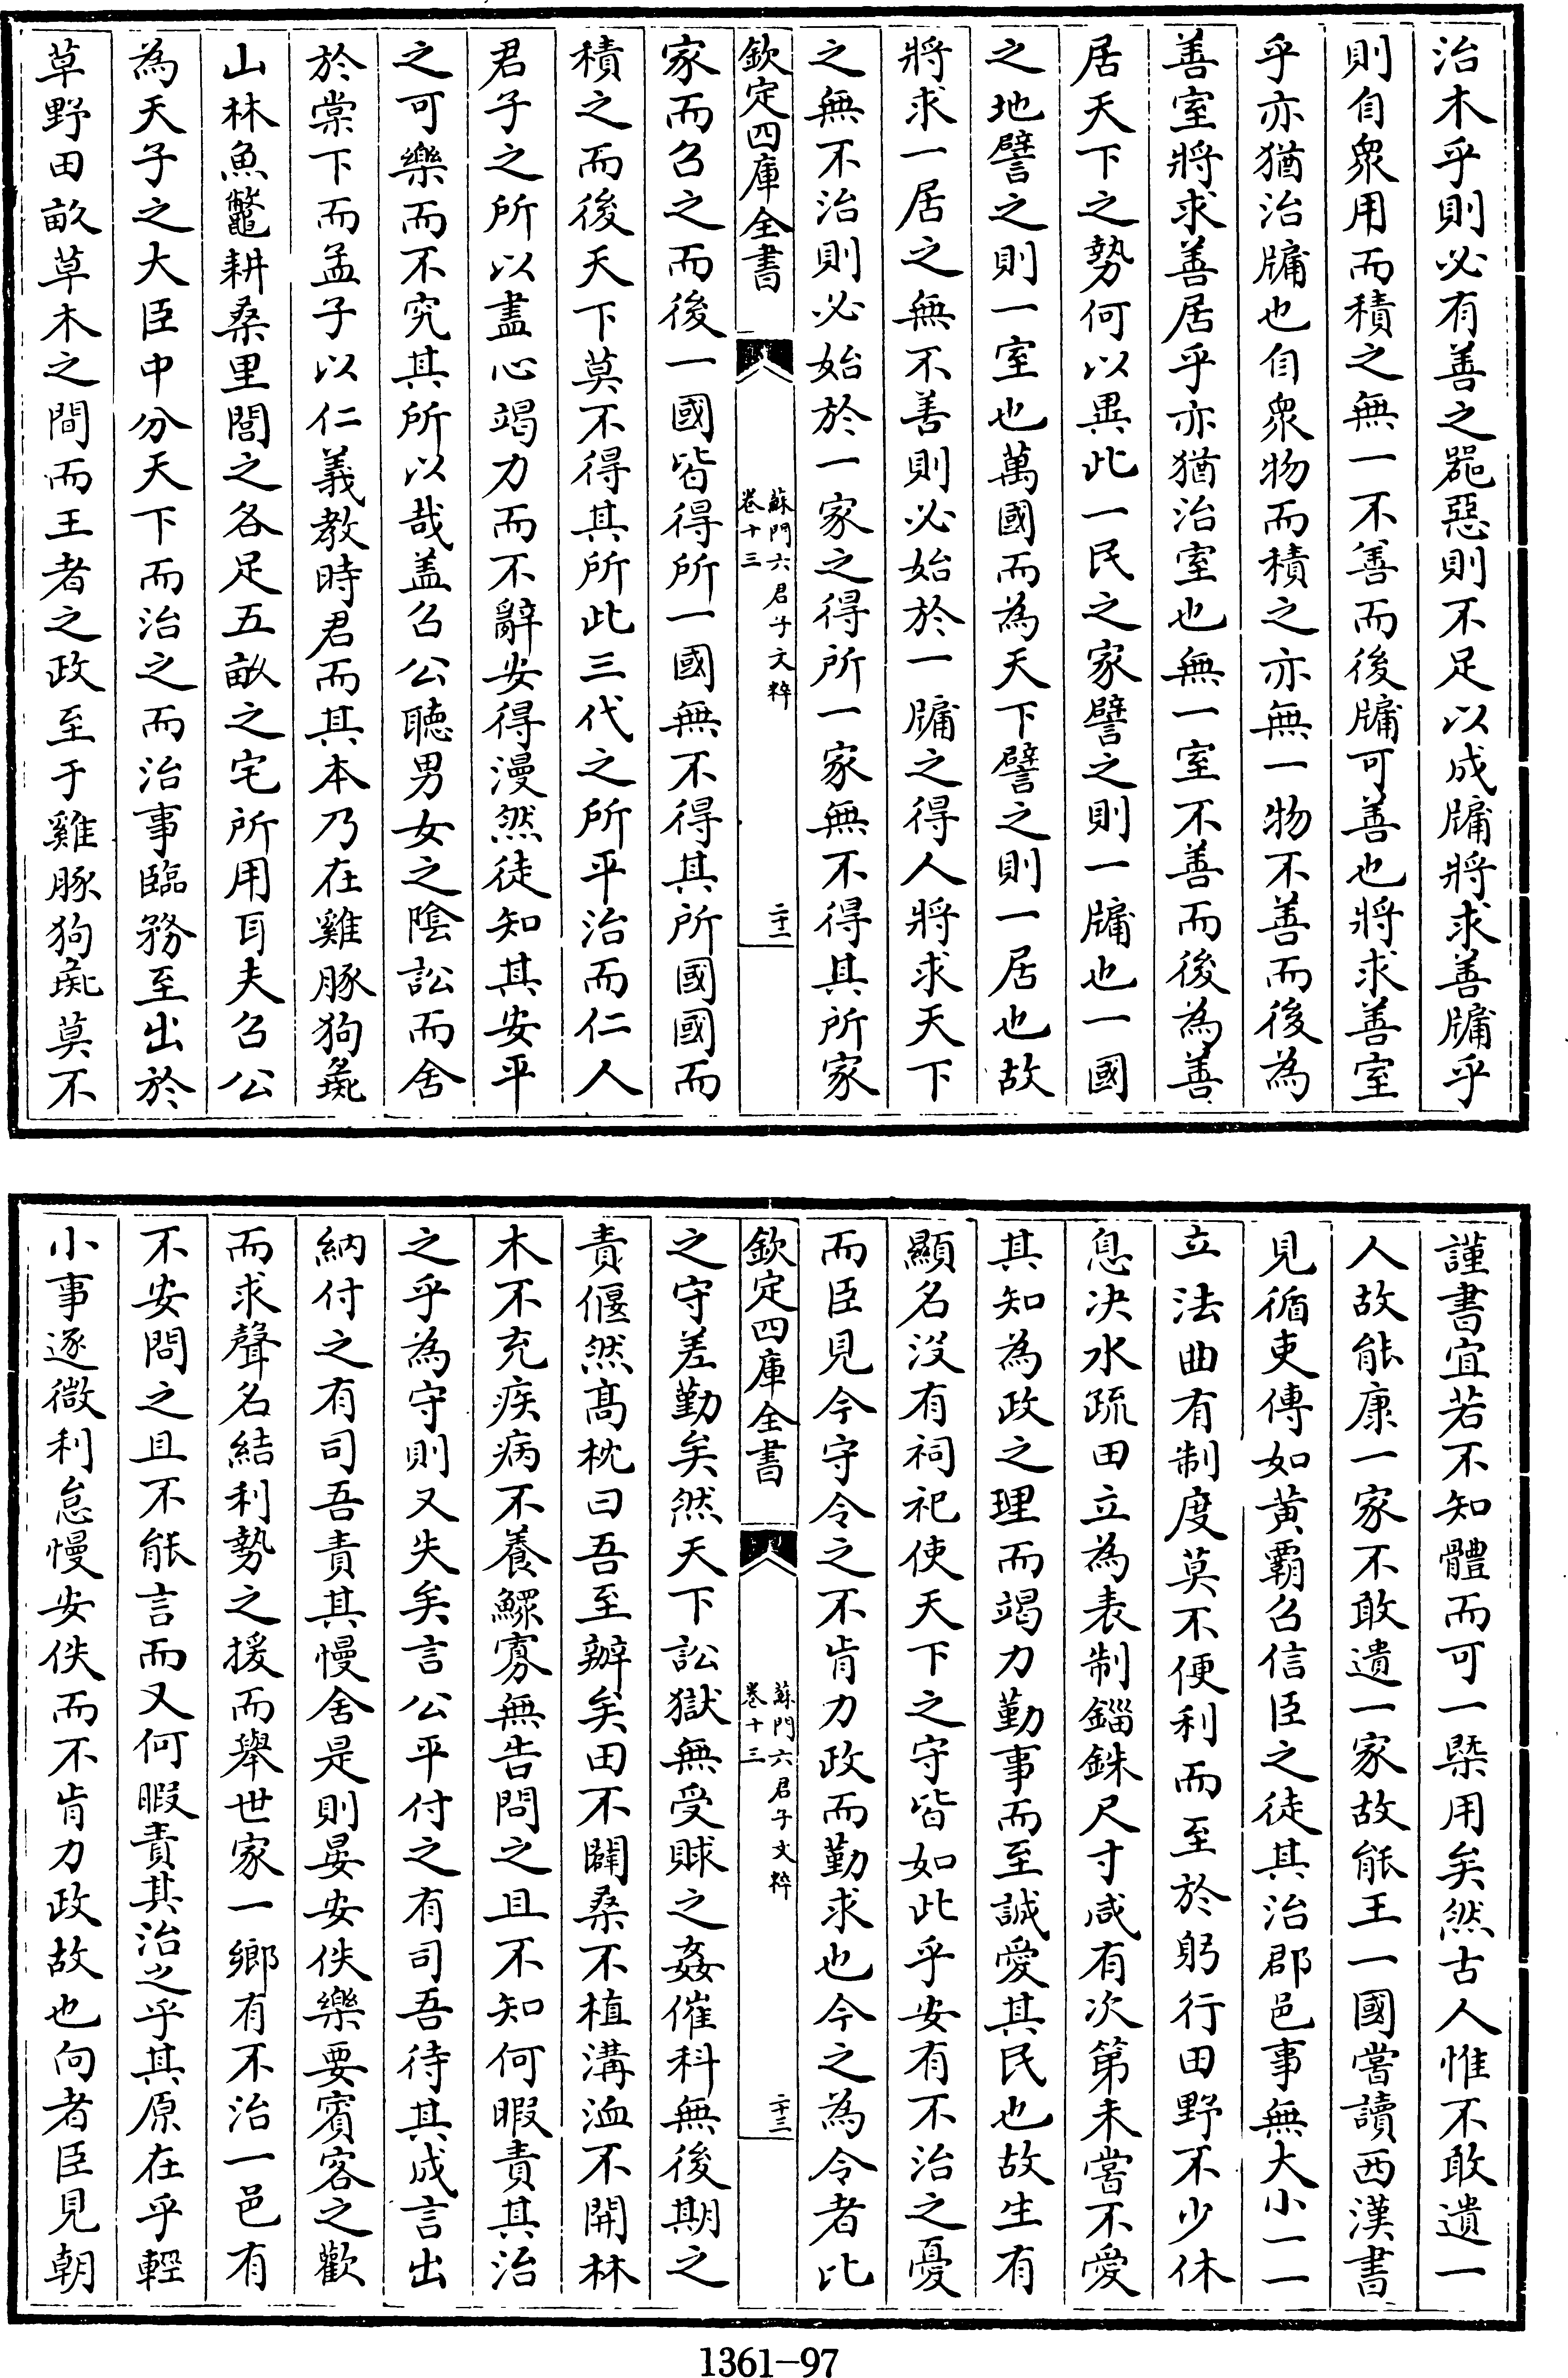 治木乎則必有善之器惡則不足以成牖將求善牖乎
則自衆用而積之無一不善而後牖可善也將求善室
乎亦猶治牖也自衆物而積之亦無一物不善而後為
善室將求善居乎亦猶治室也無一室不善而後為善
居天下之勢何以異此一民之家譬之則一牖也一國
之地譬之則一室也萬國而為天下譬之則一居也故
將求一居之無不善則必始於一牖之得人將求天下
之無不治則必始於一家之得所一家無不得其所家
欽定四庫全書
蘇門六君子文粹
卷十三
二十二
家而召之而後一國皆得所一國無不得其所國國而
積之而後天下莫不得其所此三代之所平治而仁人
君子之所以盡心竭力而不辭安得漫然徒知其安平
之可樂而不究其所以哉盖召公聽男女之陰訟而舍
於棠下而孟子以仁義教時君而其本乃在雞豚狗彘
山林魚鼈耕桑里閭之各足五畝之宅所用耳夫召公
為天子之大臣中分天下而治之而治事臨務至出於
草野田畝草木之間而王者之政至于雞豚狗彘莫不
謹書宜若不知體而可一槩用矣然古人惟不敢遺一
人故能康一家不敢遺一家故能王一國嘗讀西漢書
見循吏傳如黄霸召信臣之徒其治郡邑事無大小一一
立法曲有制度莫不便利而至於躬行田野不少休
息决水疏田立為表制錙銖尺寸咸有次第未嘗不愛
其知為政之理而竭力勤事而至誠愛其民也故生有
顯名沒有祠祀使天下之守皆如此乎安有不治之憂
而臣見今守令之不肯力政而勤求也今之為令者比
欽定四庫全書
蘇門六君子文粹
卷十三
二十三
之守差勤矣然天下訟獄無受賕之姦催科無後期之
責偃然髙枕曰吾至辦矣田不闢桑不植溝洫不開林
木不充疾病不養鰥寡無告問之且不知何暇責其治
之乎為守則又失矣言公平付之有司吾待其成言出
納付之有司吾責其慢舍是則晏安佚樂要賓客之歡
而求聲名結利勢之援而舉世家一鄉有不治一邑有
不安問之且不能言而又何暇責其治之乎其原在乎輕
小事逐微利怠慢安佚而不肯力政故也向者臣見朝
1361-97